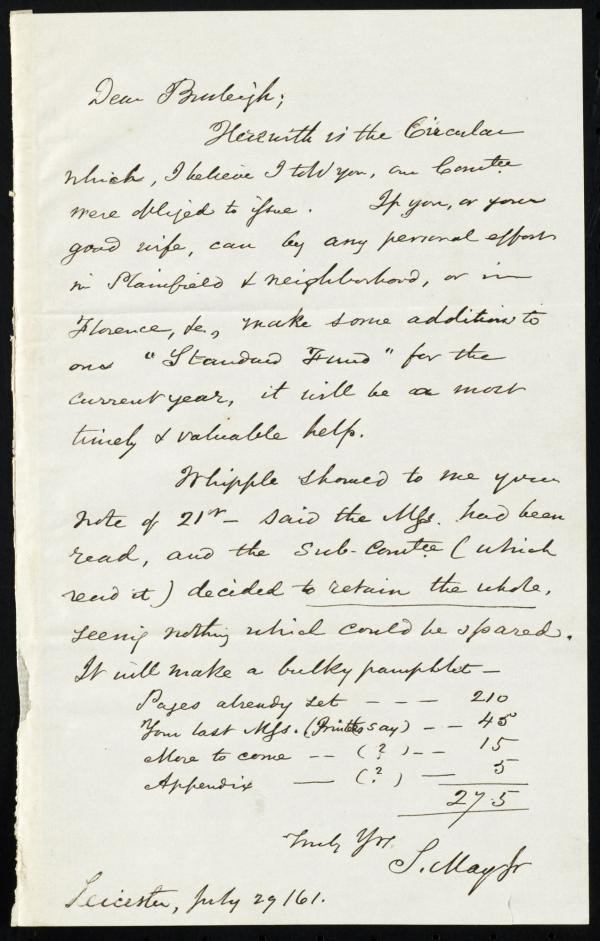 Dear Burleigh;
Herewith is the Circular
which, I believe I told you, our Comtee
were obliged to issue. If you, or your
good wife, can by any personal efforts
in Plainfield & neighborhood, or in
Florence, &c., make some addition to
our "Standard Fund" for the
current year, it will be a most
timely & valuable help.
Whipple showed to me your
note of 21st — said the Mss. had been
read, and the Sub-Comtee (which
read it) decided to retain the whole,
seeing nothing which could be spared.
It will make a bulky pamphlet —
Pages already set — — — 210
Your last Mss. (Printers say) — — 45
More to come — — (?) — — 15
Appendix — (?) — 5
275
Truly Yrs.
S. May Jr
Leicester, July 29/61.